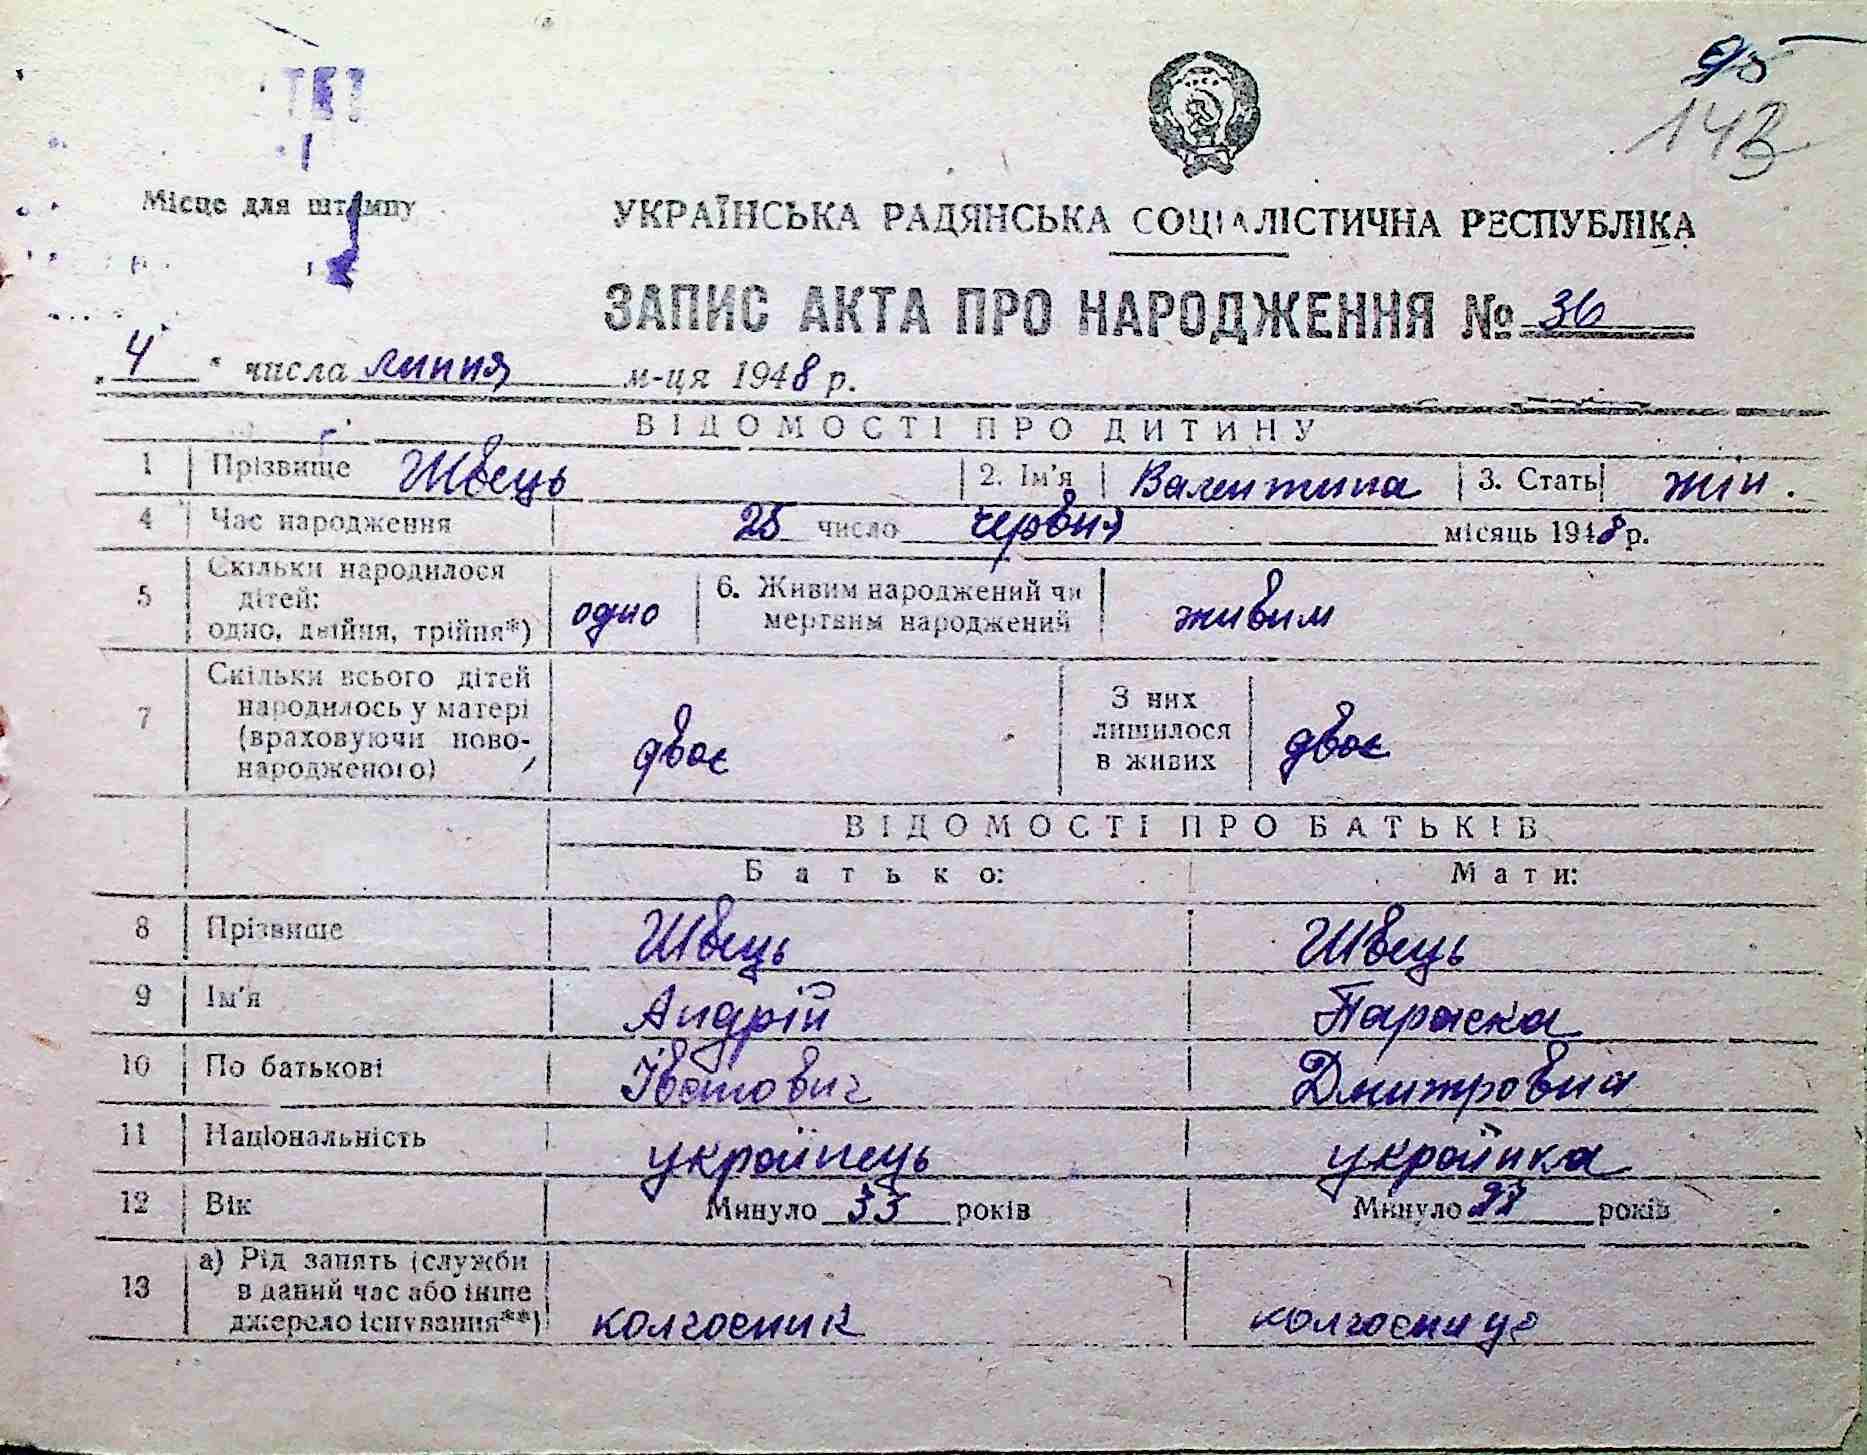 95
143
Місце для штампу
УКРАЇНСЬКА РАДЯНСЬКА СОЦІАЛІСТИЧНА РЕСПУБЛІКА
ЗАПИС АКТА ПРО НАРОДЖЕННЯ № 36
„4“ числа липня м-ця 1948 р.
ВІДОМОСТІ ПРО ДИТИНУ
1 Прізвище Швець 2. Ім'я Валентина 3. Стать жін.
4 Час народження 25 число червня місяць 1948 р.
5 Скільки народилося дітей: одно, двійня, трійня*) одно 6. Живим народжений чи мертвим народжений живим
7 Скільки всього дітей народилось у матері (враховуючи ново-народженого) двоє З них лишилося в живих двоє
ВІДОМОСТІ ПРО БАТЬКІВ
Батько: Мати:
8 Прізвище Швець Швець
9 Ім'я Андрій Параска
10 По батькові Іванович Дмитровна
11 Національність українець українка
12 Вік Минуло 33 років Минуло років
13 а) Рід занять (служби в даний час або інше джерело існування**) колгоспник колгоспниця